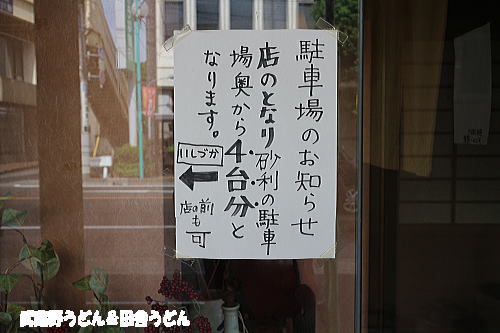 駐車場のお知らせ
店のとなり砂利の駐車
場奥から４台分と
なります。
いしづか
店の前
も
可
武蔵野うどん＆田舎うどん